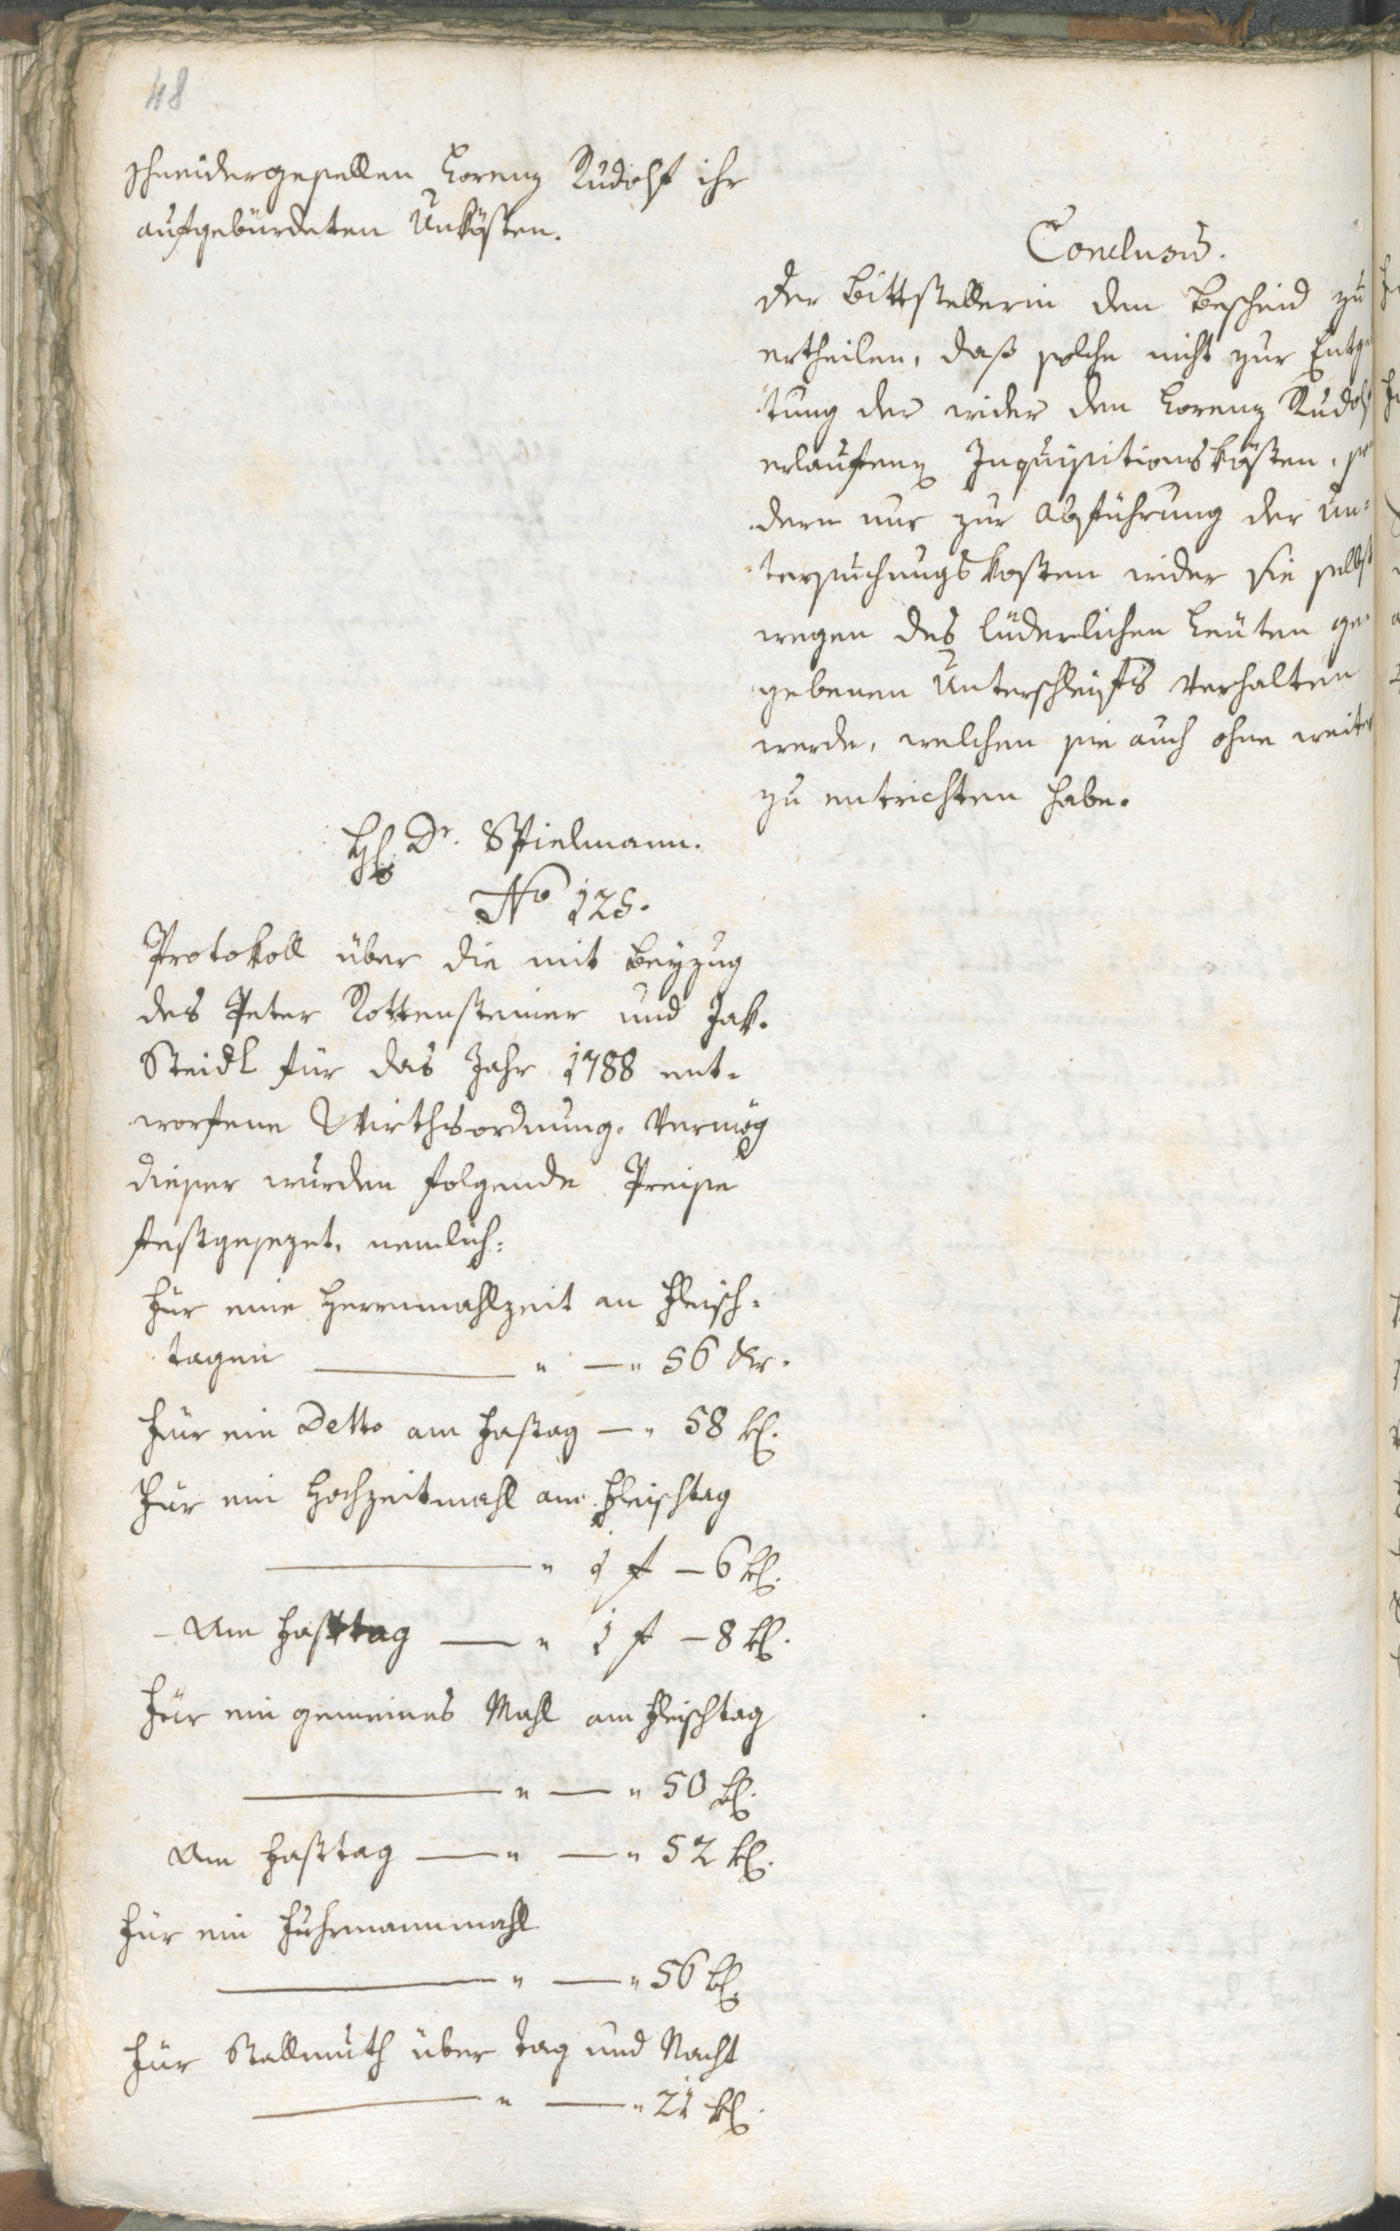 48
schneidergesellen Lorenz Rudolf ihr
aufgebürdeten Unkösten.
Conclusū.
Der Bittstellerin den Bescheid zu
ertheilen, daß solche nicht zur Entgel
tung der wider den Lorenz Rudolf
erlaufenen Inquisitionskösten, son
dern nur zur Abführung der Un=
tersuchungskosten wider sie selbst
wegen des lüderlichen Leuten ge=
gebenen Unterschleifs verhalten
werde, welchen sie auch ohne weiter
zu entrichten habe.
H. Dr. Spielmann.
No 125.
Protokoll über die mit Beyzug
des Peter Rottensteiner und Jak.
Steidl für das Jahr 1788 ent=
worfene Wirthsordnung. Vermög
dieser wurden folgende Preise
festgesezet, nemlich:
Für eine Herrenmahlzeit an Fleisch=
tagen — " — " 56 kr.
Für ein Detto am Fastag — " 58 kr.
Für ein Hochzeitmahl am Fleischtag
— " 1 f — 6 kr.
Am Fasttag — " 1 f — 8 kr.
Für ein gemeines Mahl am Fleischtag
— " — " 50 kr.
Am Fasttag — " — " 52 kr.
Für ein Fuhrmannmahl
— " — " 56 kr.
Für Stallmuth über Tag und Nacht
— " — " 21 kr.